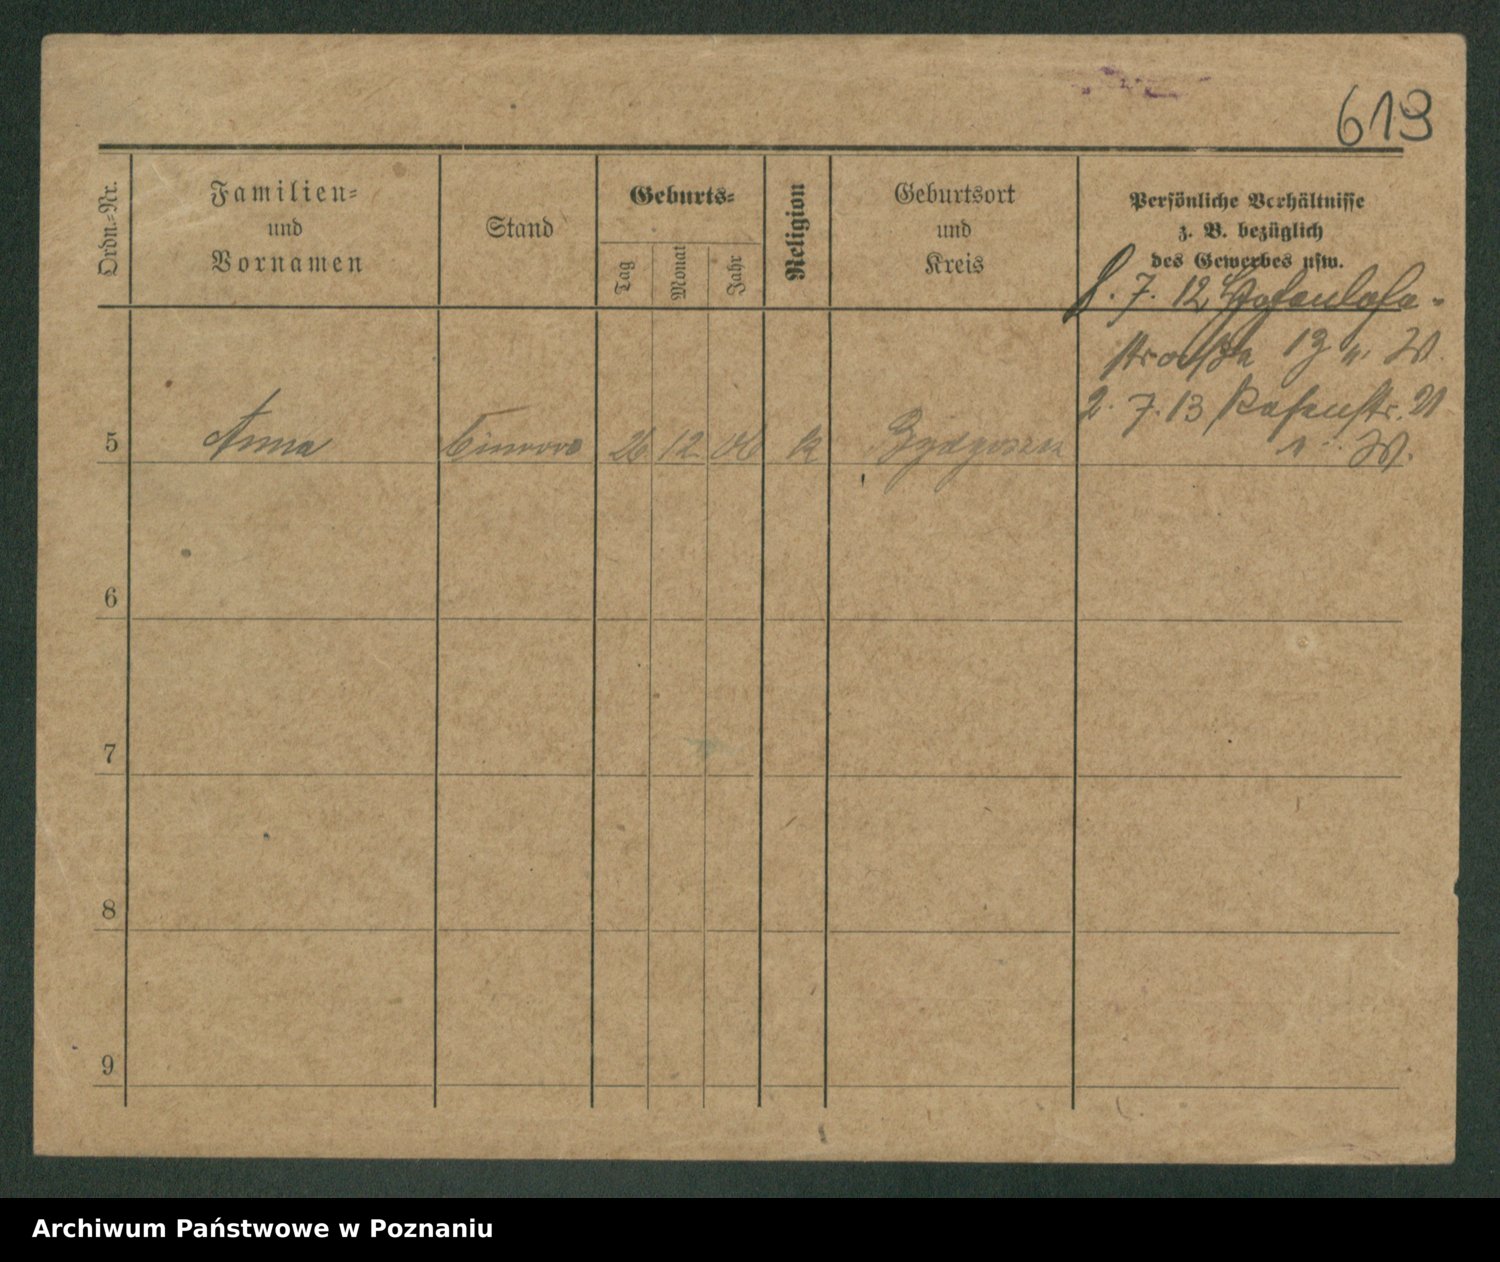 613
Ordn.-Nr.
Familien-
und
Vornamen
Stand
Geburts-
Tag
Monat
Jahr
Religion
Geburtsort
und
Kreis
Persönliche Verhältnisse
z. B. bezüglich
des Gewerbes usw.
8. 7. 12
straße 13 W.
2. 7. 13 Rosenstr. 21
W.
5 Anna 26 12 06 k Bydgoszcz
6
7
8
9
Archiwum Państwowe w Poznaniu